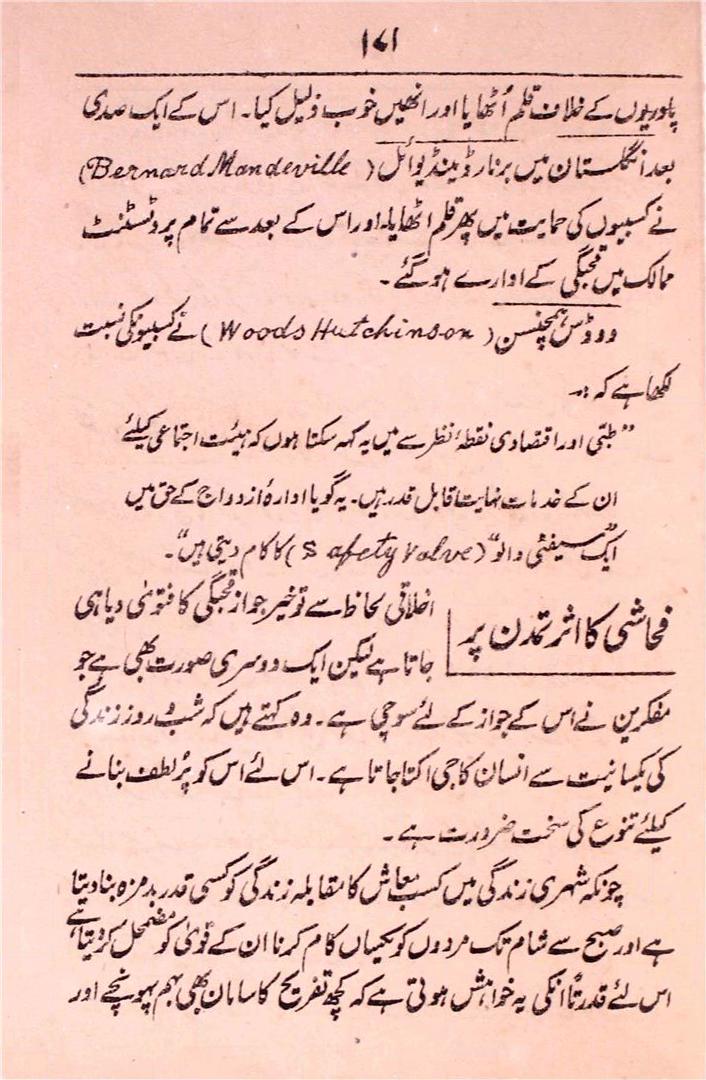 ۱۷۱
پادریوں کے خلاف قلم اُٹھایا اور انھیں خوب ذلیل کیا۔ اس کے ایک صدی
بعد انگلستان میں برنارڈ مینڈیوائل (Bernard Mandeville)
نے کسبیوں کی حمایت میں پھر قلم اٹھایا۔ اور اس کے بعد سے تمام پروٹسٹنٹ
ممالک میں قحبگی کے ادارے ہو گئے۔
ووڈس ہچنسن (Woods Hutchinson) نے کسبیونکی نسبت
لکھا ہے کہ :۔
"طبّی اور اقتصادی نقطۂ نظر سے میں یہ کہہ سکتا ہوں کہ ہیئت اجتماعی کیلئے
ان کے خدمات نہایت قابل قدر ہیں۔ یہ گویا ادارۂ ازدواج کے حق میں
ایک "سیفٹی والو" (Safety Valve) کا کام دیتی ہیں"۔
فحاشی کا اثر تمدن پر
اخلاقی لحاظ سے تو خیر جواز قحبگی کا فتویٰ دیا ہی
جاتا ہے لیکن ایک دوسری صورت بھی ہے جو
مفکرین نے اس کے جواز کے لئے سوچی ہے۔ وہ کہتے ہیں کہ شب و روز زندگی
کی یکسانیت سے انسان کا جی اکتا جاتا ہے۔ اس لئے اس کو پُر لطف بنانے
کیلئے تنوع کی سخت ضرورت ہے۔
چونکہ شہری زندگی میں کسب معاش کا مقابلہ زندگی کو کسی قدر بدمزہ بنا دیتا
ہے اور صبح سے شام تک مردوں کو یکساں کام کرنا ان کے قویٰ کو مضمحل کر دیتا ہے
اس لئے قدرتاً انکی یہ خواہش ہوتی ہے کہ کچھ تفریح کا سامان بھی بہم پہونچے اور